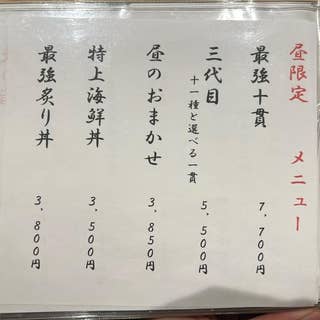 昼限定　メニュー
最強十貫　7,700円
三代目　5,500円
十一種と選べる一貫
昼のおまかせ　3,850円
特上海鮮丼　3,500円
最強炙り丼　3,800円